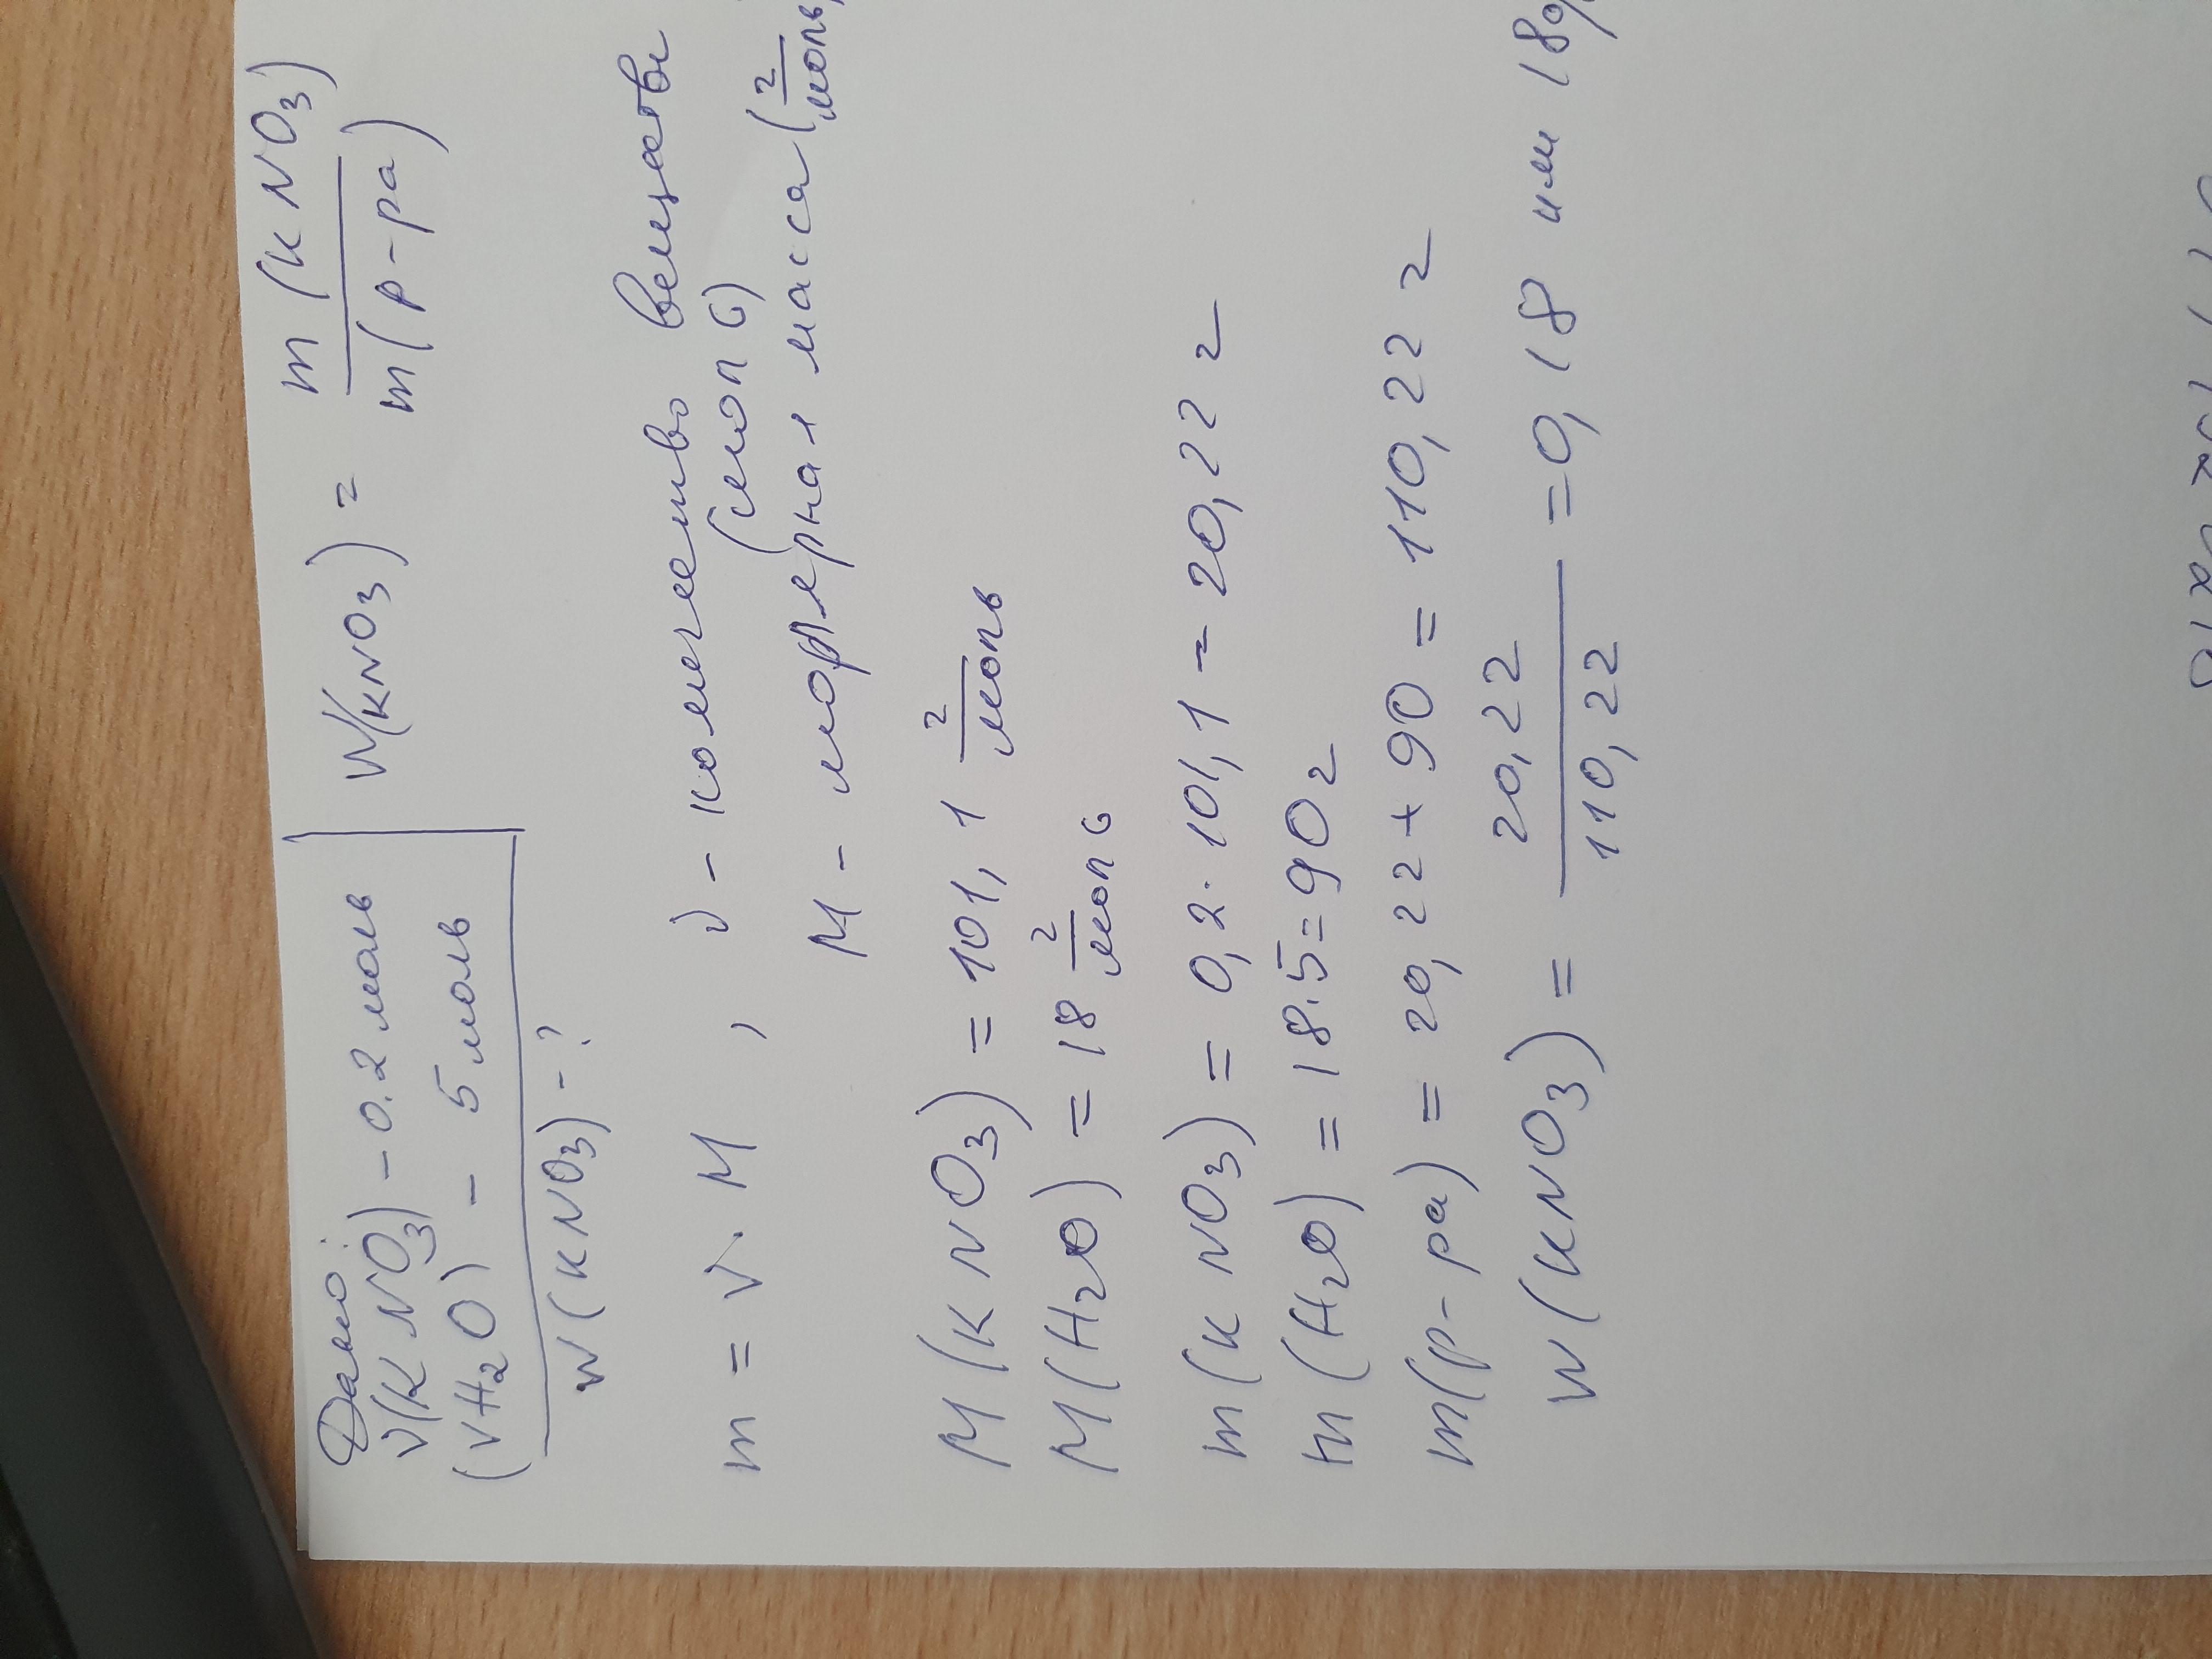 Дано:
ν(KNO₃) - 0.2 моль
(νH₂O) - 5 моль
W(KNO₃) - ?
W(KNO₃) = m(KNO₃) / m(р-ра)
m = ν · M , ν - количество вещества
(моль)
M - молярная масса (г/моль)
M(KNO₃) = 101,1 г/моль
M(H₂O) = 18 г/моль
m(KNO₃) = 0,2 · 101,1 = 20,22 г
m(H₂O) = 18·5 = 90 г
m(р-ра) = 20,22 + 90 = 110,22 г
W(KNO₃) = 20,22 / 110,22 = 0,18 или 18%